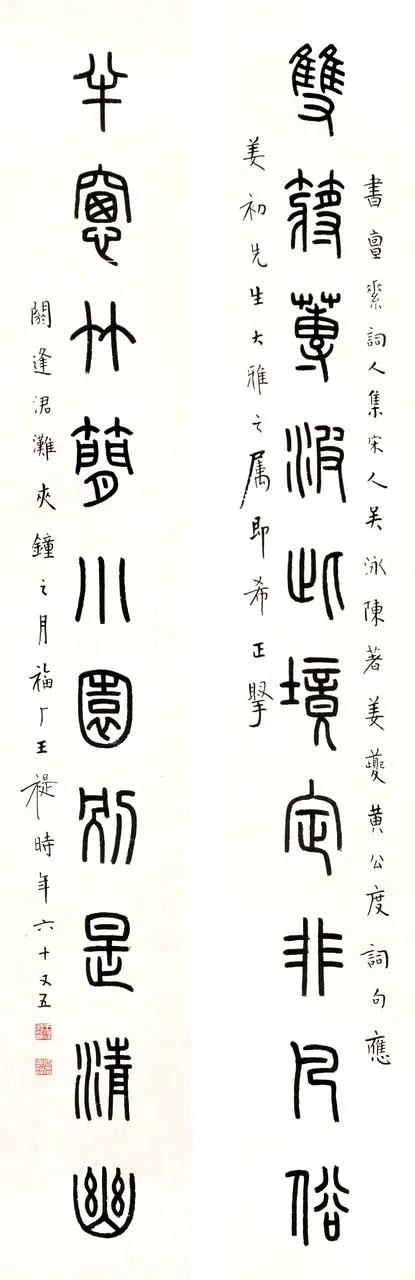 書亶素詞人集宋人吳泳陳著姜夔黃公度詞句應
雙槳蓴波此境定非凡俗
姜初先生大雅之屬即希正擥
半窻竹夢小園別是清幽
閼逢涒灘夾鐘之月福厂王禔時年六十又五